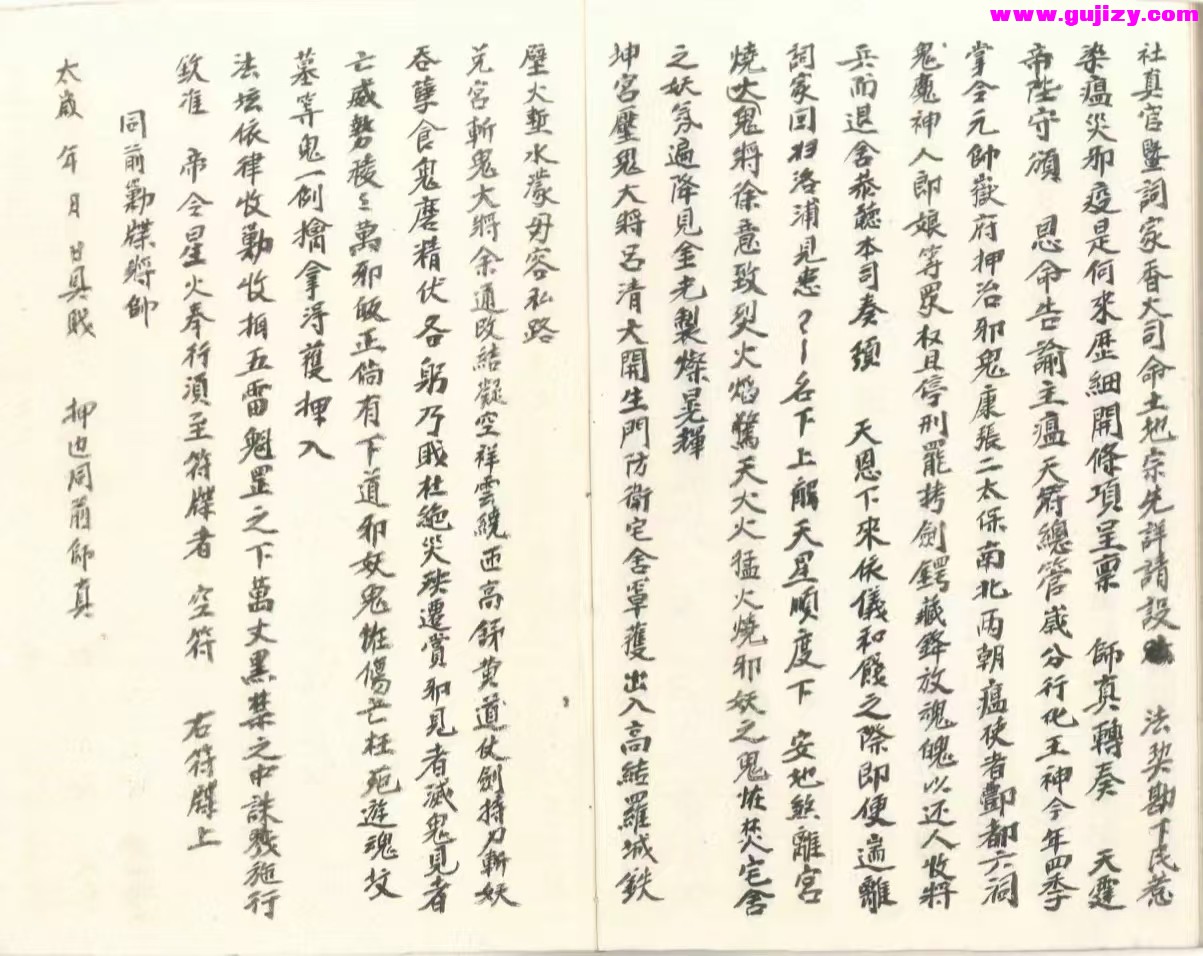 www.gujizy.com
社真官暨詞家香火司命土地宗先詳請設 法契勘下民惹
染瘟災邪疫是何來歷細開條項呈禀 師真轉奏 天霆
帝陛守頒 恩命告諭主瘟天符總管歲分行化王神今年四季
掌令元帥嶽府押冶邪鬼康張二太保南北兩朝瘟使者酆都六洞
鬼魔神人郎娘等眾权且停刑罷拷劍鍔藏鋒放魂魄以还人收將
兵而退舍恭聽本司奏績 天恩下來依儀和餞之際即便遄離
詞家回归洛浦見患?|名下上解天星順度下 安地煞離宮
燒火鬼將徐意致烈火焰驚天火火猛火燒邪妖之鬼恠焚宅舍
之妖氛遍降見金光製燦晃輝
坤宮壓鬼大將呂清大開生門防衛宅舍罩護出入高結羅城鉄
壁火塹水濠毋容私路
兌宮斬鬼大將余通政結凝空祥雲繞匝高錦黄道仗劍持刀斬妖
吞孽食鬼磨精伏各躬乃賊杜絶災殃遷賞邪見者滅鬼見者
亡威勢稜〻萬邪皈正倘有下道邪妖鬼恠傷亡枉死遊魂坟
墓等鬼一例擒拿淂護押入
法坛依律收勦收捐五雷魁罡之下萬丈黒禁之中誅戮施行
欽准 帝令星火奉行湏至符牒者 空符 右符牒上
同前勦牒將帥
太歲 年 月 日具賤 押也同前師真